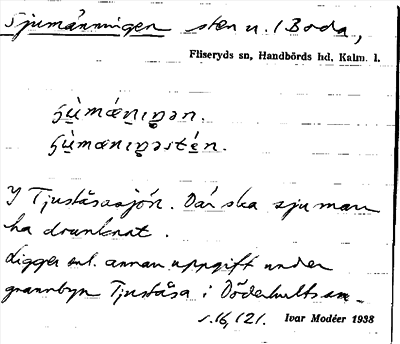 Sjumänningen sten n. 1 Boda,
Fliseryds sn, Handbörds hd, Kalm. l.
I Tjuståsasjön. Där ska sju man
ha drunknat.
Ligger enl. annan uppgift under
grannbyn Tjuståsa i Döderhults sn.
s. 16, 121. Ivar Modéer 1938